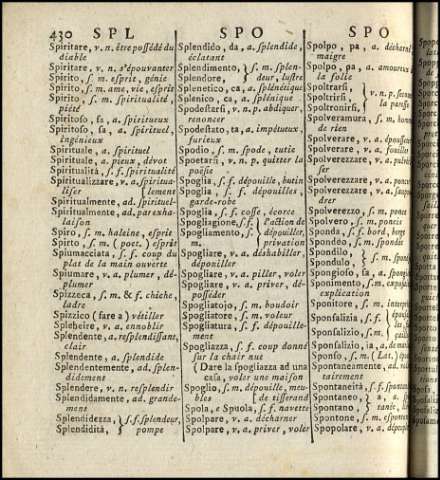 430 SPL SPO SPO
Spiritare, v. n. être possédé du
diable
Spiritare, v. n. s'épouvanter
Spirito, s. m. esprit, génie
Spirito, s. m. ame, vie, esprit
Spirito, s. m. spiritualité,
piété
Spiritoso, sa, a. spiritueux
Spiritoso, sa, a. spirituel,
ingénieux
Spirituale, a. spirituel
Spirituale, a. pieux, dévot
Spiritualità, s. f. spiritualité
Spiritualizzare, v. a. spiritua-
liser [lement
Spiritualmente, ad. spirituel-
Spiritualmente, ad. par exha-
laison
Spiro, s. m. haleine, esprit
Spirto, s. m. (poet.) esprit
Spiumacciata, s. f. coup du
plat de la main ouverte
Spiumare, v. a. plumer, dé-
plumer
Spizzeca, s. m. & f. chiche,
ladre
Spizzico (fare a) vétiller
Splebeire, v. a. ennoblir
Splendente, a. resplendissant,
clair
Splendente, a. splendide
Splendentemente, ad. splen-
didement
Splendere, v. n. resplendir
Splendidamente, ad. grande-
ment
Splendidezza, } s. f. splendeur,
Splendidità, } pompe
Splendido, da, a. splendide,
éclatant
Splendimento, } s. m. splen-
Splendore, } deur, lustre
Splenetico, ca, a. splénétique
Splenico, ca, a. splénique
Spodestarsi, v. n. p. abdiquer,
renoncer
Spodestato, ta, a. impétueux,
furieux
Spodio, s. m. spode, tutie
Spoetarsi, v. n. p. quitter la
poésie
Spoglia, s. f. dépouille, butin
Spoglia, s. f. dépouilles,
garde-robe
Spoglia, s. f. cosse, écorce
Spogliagione, s. f. } l'action de
Spogliamento, s. } dépouiller,
m. } privation
Spogliare, v. a. déshabiller,
dépouiller
Spogliare, v. a. piller, voler
Spogliare, v. a. priver, dé-
posséder
Spogliatojo, s. m. boudoir
Spogliatore, s. m. voleur
Spogliatura, s. f. dépouille-
ment
Spogliazza, s. f. coup donné
sur la chair nue
{Dare la spogliazza ad una
casa, voler une maison
Spoglio, s. m. dépouille, meu-
bles [de tisserand
Spola, e Spuola, s. f. navette
Spolpare, v. a. décharner
Spolpare, v. a. priver, voler
Spolpo, pa, a. décharn
maigre
Spolpo, pa, a. amoureux
la folie
Spoltrarsi,
Spoltrirsi, } v. n. p. secou
Spoltronirsi, la paresse
Spolveramura, s. m. homme
de rien
Spolverare, v. a. épousset
Spolverare, v. a. fouille
Spolverezzare, v. a. pulvé
ser
Spolverezzare, v. a. saupou
drer
Spolverezzo, s. m. ponc
Spolvero, s. m. poncis
Sponda, s. f. bord, borge
Spondéo, s. m. spondée
Spondilo,
Spondulo, } s. m. spond
Spongioso, sa, a. spongi
Sponimento, s. m. exposi
explication
Sponitore, s. m. interpr
Sponsalizia, s. f.
Sponsalizio, s. m.
Sponsalizio, ia, a. de
Sponso, s. m. (Lat.) épou
Spontaneamente, ad. volon
tairement
Spontaneità, s. f. spontan
Spontaneo, a, a. spon
Spontano, } tanée, li
Spontone, s. m. espont
Spopolare, v. a. dépeupl